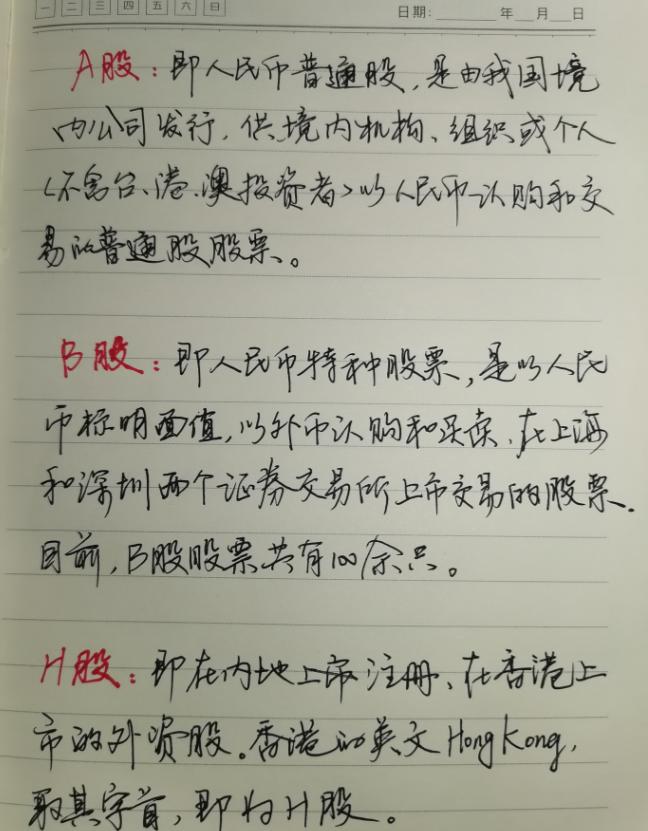 一 二 三 四 五 六 日
日期: 年 月 日
A股：即人民币普通股，是由我国境
内公司发行，供境内机构、组织或个人
(不含台、港、澳投资者)以人民币认购和交
易的普通股股票。
B股：即人民币特种股票，是以人民
币标明面值，以外币认购和买卖、在上海
和深圳两个证券交易所上市交易的股票.
目前，B股股票共有100余只。
H股：即在内地上市注册、在香港上
市的外资股。香港的英文HongKong，
取其字首，即为H股。